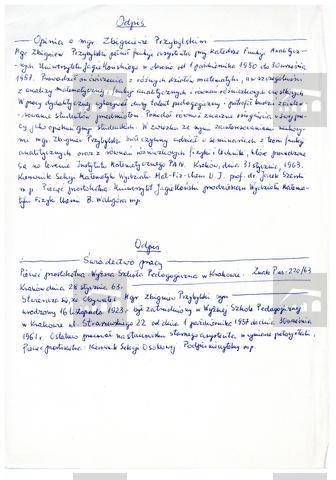 Odpis
Opinia o mgr. Zbigniewie Przybylskim
Mgr Zbigniew Przybylski pełnił funkcję asystenta przy Katedrze Funkcji Analitycz-
nych Uniwersytetu Jagiellońskiego w okresie od 1 października 1950 do 30 września
1957. Prowadził on ćwiczenia z różnych działów matematyki, a w szczególności
z analizy matematycznej, funkcji analitycznych i równań różniczkowych cząstkowych.
W pracy dydaktycznej wykazywał duży talent pedagogiczny i potrafił budzić zainte-
resowanie studentów przedmiotem. Ponadto również znaczne osiągnięcia w swej pra-
cy jako opiekun grup studenckich. W związku ze swymi zainteresowaniami nauko-
mi mgr. Zbigniew Przybylski brał czynny udział w seminariach z teorii funkcji
analitycznych oraz z równań różniczkowych fizyki i techniki, które prowadzone
są na terenie Instytutu Matematycznego PAN. Kraków, dnia 31 stycznia, 1963.
Kierownik Sekcji Matematyki Wydziału Mat-Fiz-Chem U.J. prof. dr Jacek Szarski
m.p. Pieczęć prostokątna: Uniwersytet Jagielloński prodziekan Wydziału Matema-
tyki Fizyki Chemii B. m.p.
Odpis
Świadectwo pracy
Pieczęć prostokątna - Wyższa Szkoła Pedagogiczna w Krakowie. Znak Pers-270/63
Kraków dnia 28 stycznia 63.
Stwierdza się, że Obywatel Mgr Zbigniew Przybylski syn
urodzony 16 listopada 1923. był zatrudniony w Wyższej Szkole Pedagogicznej
w Krakowie ul. Straszewskiego 22 od dnia 1 października 1957 do dnia 30 września
1961. Ostatnio pracował na stanowisku starszego asystenta w wymiarze pełnego etatu.
Pieczęć prostokątna: Kierownik Sekcji Osobowej Podpis nieczytelny m.p.